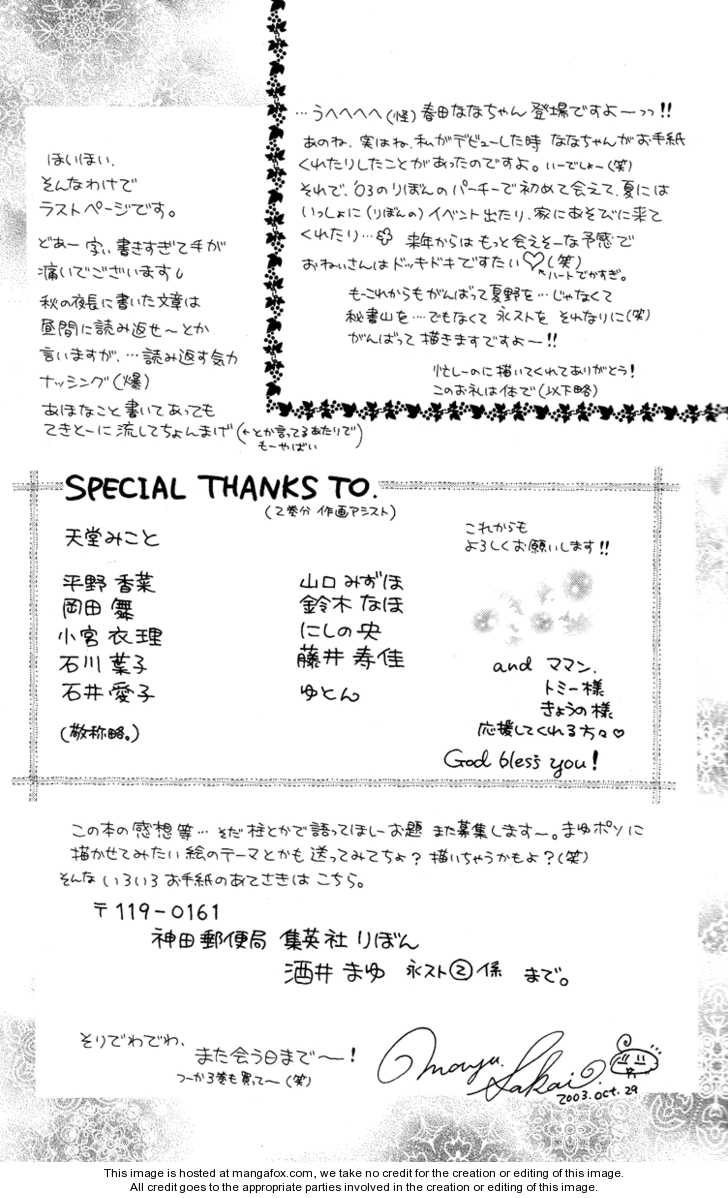 …うへへへへ(怪) 春田ななちゃん 登場ですよーっっ!!
あのね、実はね、私がデビューした時 ななちゃんがお手紙
くれたりしたことがあったのですよ。いーでしょー(笑)
それで、'03のりぼんのパーチーで初めて会えて、夏には
いっしょに(りぼんの)イベント出たり、家にあそびに来て
くれたり… 来年からはもっと会えそーな予感で
おねぃさんはドッキドキですたい♡(笑)
↖ハートでかすぎ。
もーこれからもがんばって夏野を…じゃなくて
秘書山を…でもなくて 永ストを それなりに(笑)
がんばって 描きますですよー!!
忙しーのに描いてくれてありがとう!
このお礼は体で(以下略)
ほいほい、
そんなわけで
ラストページです。
どあー 字ぃ書きすぎて手が
痛いでございます
秋の夜長に書いた文章は
昼間に読み返せ〜とか
言いますが、…読み返す気力
ナッシング(爆)
あほなこと書いてあっても
てきとーに流してちょんまげ(←とか言ってるあたりで
もーやばい)
SPECIAL THANKS TO.
(2巻分 作画アシスト)
天堂みこと
平野 香菜
岡田 舞
小宮 衣理
石川 葉子
石井 愛子
(敬称略。)
山口 みずほ
鈴木 なほ
にしの 央
藤井 寿佳
ゆとん
これからも
よろしくお願いします!!
and ママン、
トミー様
きょうの様
応援してくれる方々♡
God bless you!
この本の感想 等… そだ 柱とかで語ってほしーお題 また募集します〜。まゆポンに
描かせてみたい絵のテーマとかも 送ってみてちょ? 描いちゃうかもよ?(笑)
そんな いろいろ お手紙のあてさきは こちら。
〒119-0161
神田郵便局 集英社 りぼん
酒井 まゆ 永スト②係 まで。
そりでわでわ、
また会う日まで〜!
つーか3巻も買って〜(笑)
Mayu. Sakai.
2003.oct.29
This image is hosted at mangafox.com, we take no credit for the creation or editing of this image.
All credit goes to the appropriate parties involved in the creation or editing of this image.